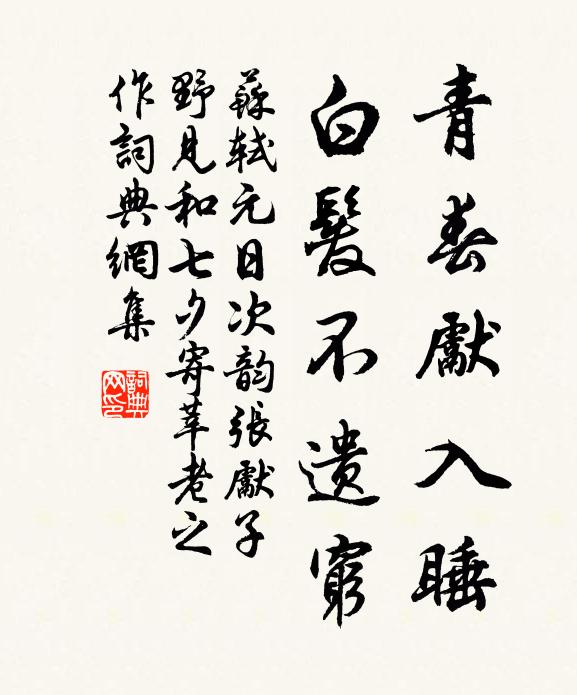 青春獻入睡
白髮不遺窮
蘇軾元日次韵張獻子
野見和七夕寄莘老之
作詞典網集
詞典
网印